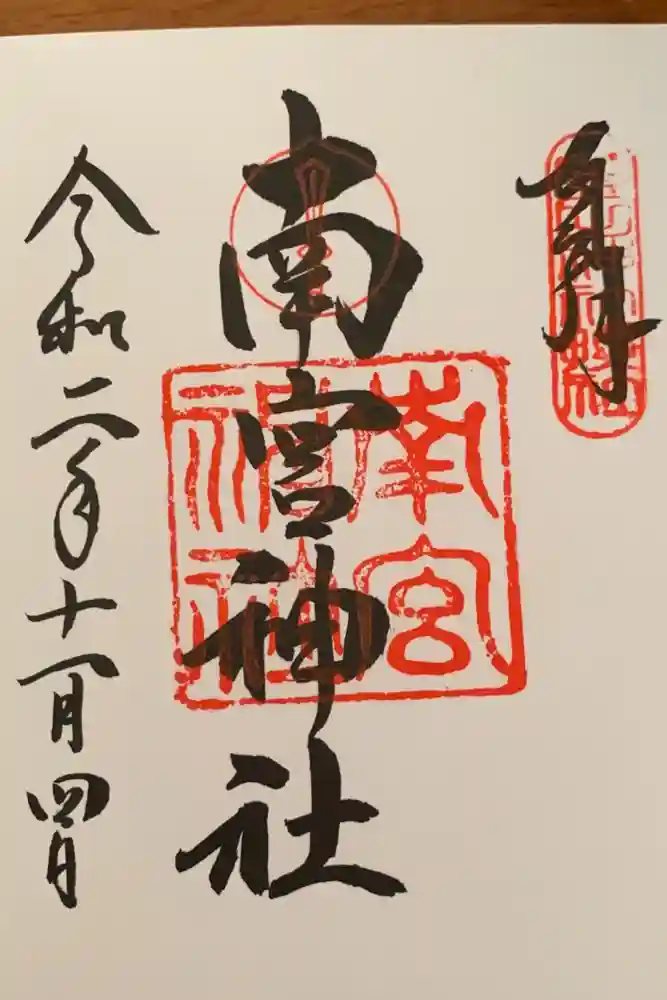 奉拝
南宮神社
南宮神社
令和二年十一月四日